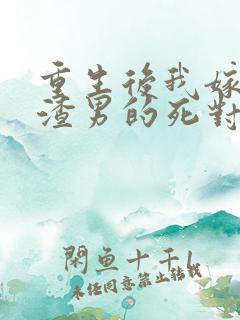 重生後我嫁
渣男的死對
閑魚十千l
未任同意禁止轉載